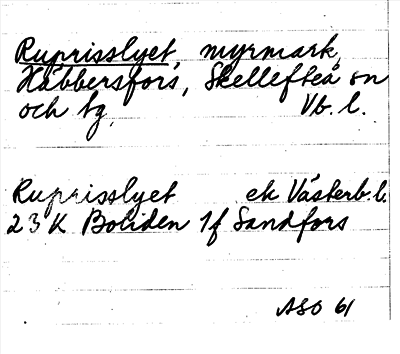 Ruprisslyet, myrmark,
Häbbersfors, Skellefteå sn
och tg, Vb. l.
Ruprisslyet ek Västerb. l.
23 K Boliden 1f Sandfors
ASO 61